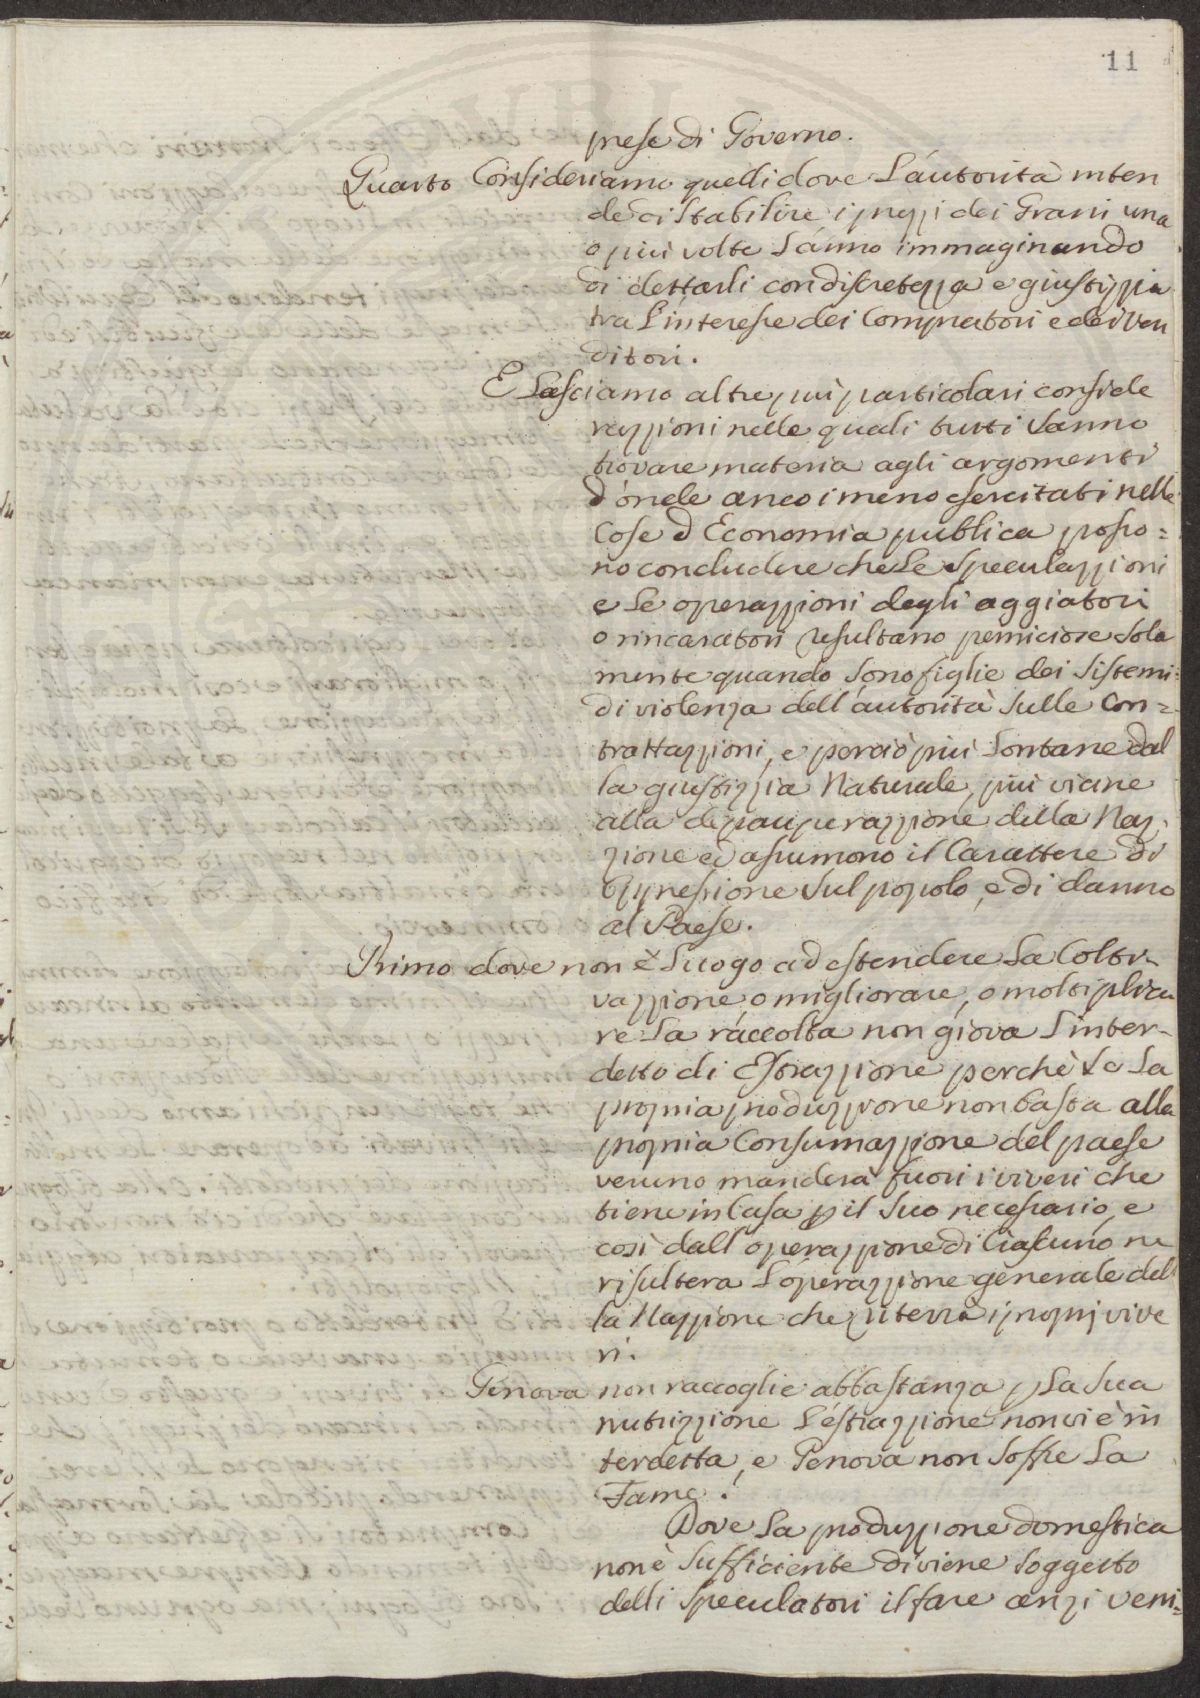 11
prese di Governo.
Quarto Consideriamo quelli dove L'autorità inten
de di stabilire i prezzi dei Grani una
o più volte L'anno immaginando
di dettarli con discretezza e giustizzia
tra L'interesse dei Compratori e dei Ven
ditori.
E Lasciamo altre più particolari conside
razzioni nelle quali tutti Sanno
trovare materia agli argomenti
d'onde anco i meno esercitati nelle
Cose d'Economia publica posso=
no concludere che Le Speculazzioni
e Le operazzioni degli aggiatori
o rincaratori resultano perniciose Sola
mente quando Sono figlie dei Sistemi
di violenza dell'autorità Sulle Con=
trattazzioni, e perciò più Lontane dal
la giustizzia Naturale, più vicine
alla depauperazzione della Naz.
zione ed assumono il Carattere di
Oppressione Sul popolo, e di danno
al Paese.
Primo dove non è Luogo ad estendere La Colti-
vazzione, o migliorare, o moltiplica
re La raccolta non giova L'inter-
detto di Estrazzione perchè Se La
propria produzzione non basta alla
propria Consumazzione del paese
veruno manderà fuori i viveri che
tiene in Casa p il Suo necessario, e
così dall'operazzione di Ciascuno ne
risulterà L'operazzione generale del
la Nazzione che riterrà i proprj vive
ri.
Genova non raccoglie abbastanza p La Sua
nutrizzione L'estrazzione non vi è in
terdetta, e Genova non Soffre La
Fame.
Dove La produzzione domestica
non è Sufficiente diviene Soggetto
delli Speculatori il fare anzi veni=